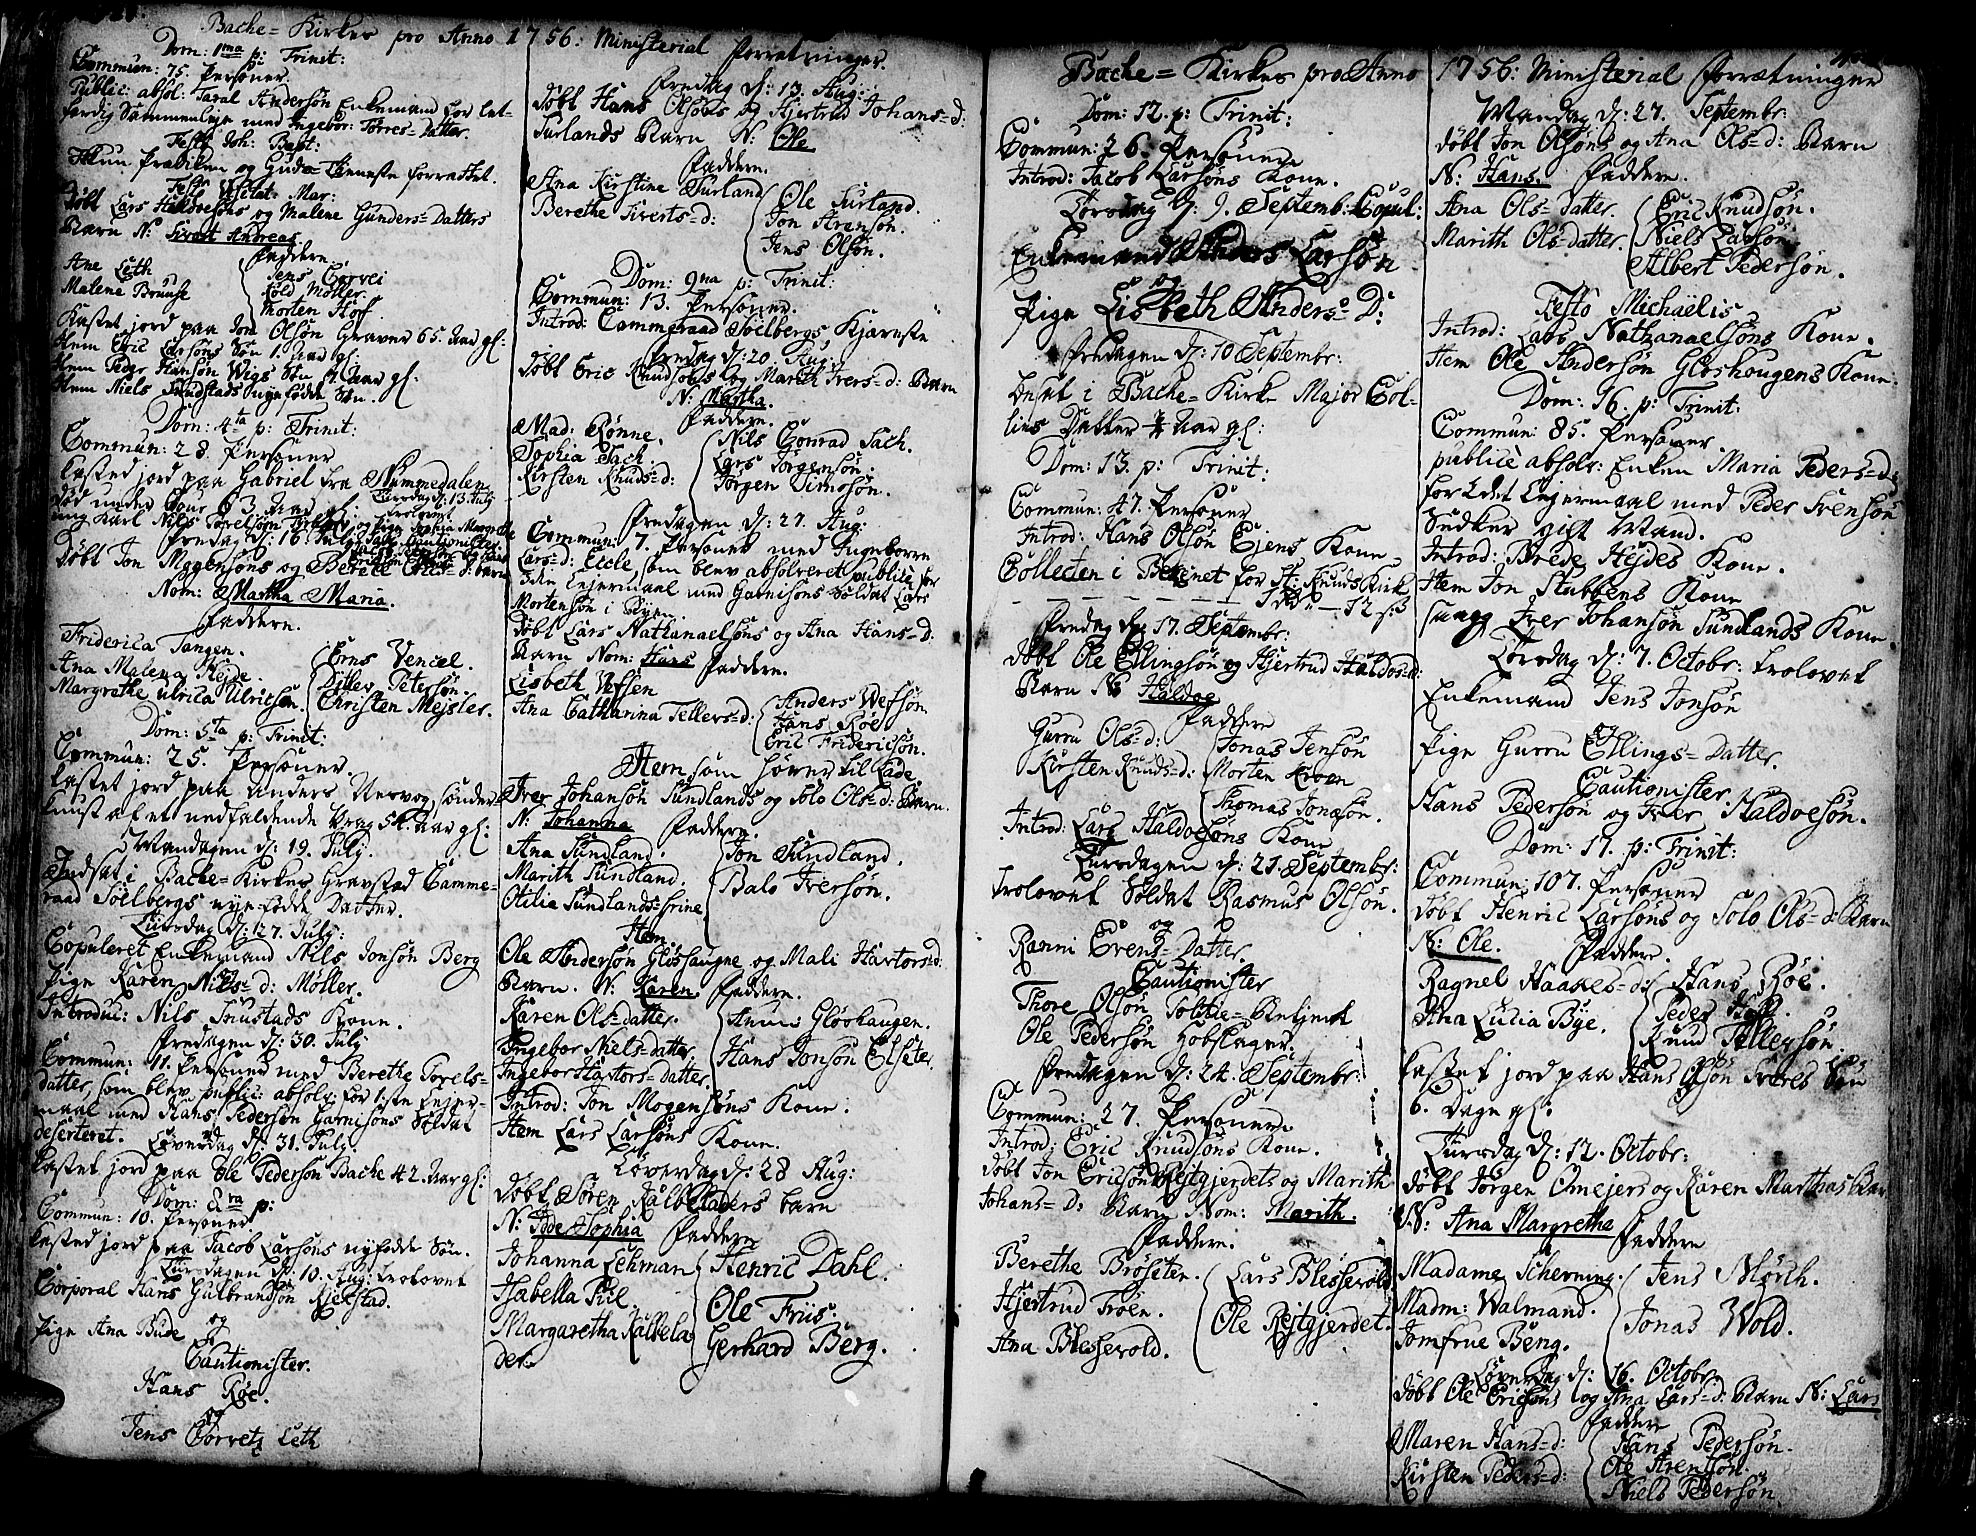 Bache=Kirkes pro Anno 1756: Ministerial Forretninger.
Dom: 1ma p: Trinit:
Commun: 75. Personer.
Public: absol: Taral Andersøn Enkemand for let-
færdig Sammenleje med Ingebor: Torres=Datter.
Festo Joh: Bapt:
Ikun Prædiken og Guds=Tieneste forrættet.
Festo Visitat: Mar:
Døbt Lars Haldoesøns og Malene Gunders=Datters
Barn N: Sivert Andreas.
Faddere.
Ane Leth
Malene Bruuse
Jens Corvei
Told Møller.
Morten Hof.
Kastet jord paa Jon Olsøn Graver 65. Aar gl:
Item Eric Larsøns Søn 1. Aar gl:
Item Peder Hansøn Wigs Søn 4. Aar gl:
Item Niels Sundstads nyefødde Søn.
Dom: 4ta p: Trinit:
Commun: 28. Personer
Kasted jord paa Gabriel fra Nummedalen
død under Cour 63 Aar gl:
Tirsdag d: 13. July
trolovet
ung Karl Nils Torelsøn og Pige Sophia Margrethe
Fredag d: 16 July
Døbt Jon Moggensøns og Berete Erics=d: barn
Nom: Martha Maria.
Faddere.
Friderica Tangen.
Ana Malena Hejde.
Margrethe Ulrica Ulricsen.
Erns Vencel.
Ditlev Petersøn.
Christen Mejsler.
Dom: 5ta p: Trinit:
Commun: 25. Personer.
Kastet jord paa Anders Uervog sønder-
knust af et nedfaldende Vrag 54. Aar gl:
Mandagen d: 19. July.
Indsat i Bache=Kirkes Gravsted Camme-
raad Søelbergs nye fødde Datter.
Tirsdag d: 27. July:
Copuleret Enkemand Nils Jonsøn Berg
og
Pige Karen Nils=d: Møller.
Introduc: Nils Srustads Kone.
Fredagen d: 30. July
Commun: 41. Personer med Berethe Torels-
datter, som blev public: absolv: for 1ste Lejer-
maal med Hans Pedersøn Garnisons Soldat
deserteret.
Løverdag d: 31. July.
Kastet jord paa Ole Pedersøn Bache 42. Aar gl:
Dom: 8va p:
Commun: 10. Personer
Kasted jord paa Jacob Larsøns nyfødde Søn.
Tirsdagen d: 10. Aug: trolovet
Corporal Hans Gulbrandsøn Kjelstad.
og
Pige Ana Bude
Cautionister.
Hans Røe.
og
Jens Corvetz Leth
Fredag d: 13. Aug:
Døbt Hans Olsøns og Hjertrud Johans=d:
Surlands Barn N: Ole
Faddere.
Ana Kirstine Surland
Berethe Siverts=d:
Ole Surland.
Jon Arensøn.
Jens Olsøn.
Dom: 9na p: Trinit:
Commun: 13. Personer.
Introd: Cammeraad Søelbergs Kjæreste
Fredag d: 20. Aug:
Døbt Eric Knudsøns og Marith Ivers=d: Barn
N: Martha.
Faddere.
Mad: Rønne.
Sophia Sach
Kirsten Knuds=d:
Nils Conrad Sach.
Lars Jørgensøn:
Jørgen Simosøn.
Fredagen d: 27. Aug:
Commun: 7. Personer med Ingeborre
Lars=d: Eccle, som blev absolveret publicè for
Lejermaal med Garnisons Soldat Lars
Mortensøn i Byen
Døbt Lars Nathanaelsøns og Ana Hans=d:
Barn Nom: Hans
Faddere.
Lisbeth Vefsen
Ana Catharina Tellers=d:
Anders Wefsøn
Hans Røe
Eric Fridericsøn.
Item som hører til Lade
Iver Johansøn Sundlands og Solo Ols=d: Barn.
N: Johanna
Faddere.
Ana Sundland.
Marith Sundland.
Otilia Sundlands=Trine
Jon Sundland.
Balo Iversøn.
Item
Ole Andersøn Gløshaugne og Mali Hartors=d:
Barn. N: Karen.
Faddere.
Karen Ols=datter.
Ingebor Niels=datter
Ingebor Hartors=datter.
Arne Gløshaugen.
Hans Jonsøn Elseter.
Introd: Jon Mogensøns Kone:
Item Lars Larsøns Kone.
Løverdag d: 28 Aug:
Døbt Søren Kalbeladers barn
N: Ide Sophia
Faddere
Johanna Lehman
Isabella Piil
Margaretha Kalbela-
der.
Henric Dahl.
Ole Friis:
Gerhard Berg.
Bache=Kirkes pro Anno 1756: Ministerial Forrætninger
Dom: 12. p: Trinit:
Commun: 26. Personer
Introd: Jacob Larsøns Kone.
Torsdag d: 9. Septemb: Copul:
Enkemand Anders Larsøn
og
Pige Lisbeth Anders=D:
Fredagen d: 10 Septembr:
Insat i Bache=Kirke Major Col-
lins Datter Aar gl:
Dom: 13. p: Trinit:
Commun: 47. Personer
Introd: Hans Olsøn Ejens Kone
Collecten i Bekenet for St: Knuds Kirke
Fredag den 17. Septembr:
Døbt Ole Ellingsøn og Hjertrud Haldos=d:
Barn N: Haldoe
Faddere
Gurru Ols=d:
Kirsten Knuds=d:
Jonas Jensøn
Morten Kroen
Thomas Jonæsøn.
Introd: Lars Haldoesøns Kone
Tirsdagen d: 21. Septembr:
trolovet Soldat Rasmus Olsøn.
og
Ranni Evens=Datter.
Cautionister
Thore Olsøn Politie=Betjent
Ole Pedersøn Hofslager.
Fredagen d: 24. Septembr:
Commun: 27. Personer
Introd: Eric Knudsøns Kone.
Døbt Jon Ericsøn Rejtgjerdets og Marith
Johans=D: Barn Nom: Marith.
Faddere.
Berethe Brøseten.
Hjertrud Troen.
Ana Blesserold.
Lars Blesserold
Ole Rejtgjerdet.
Mandag d: 27. Septembr:
Døbt Jon Olsøns og Ana Ols=d: Barn
N: Hans.
Faddere.
Ana Ols=datter.
Marith Ols=datter.
Eric Knudsøn.
Niels Larsøn
Albert Pedersøn.
Festo Michaëlis
Introd: Lars Nathanaelsøns Kone.
Item Ole Andersøn Gløshougens Kone.
Dom: 16. p: Trinit:
Commun: 85. Personer
publicè absolv: Enken Maria Peders=d:
for Lejermaal med Peder Svensøn
gift Mand.
Introd: Brede Hejdes Kone.
Item Jon Stubbens Kone
samt Iver Johansøn Sundlands Kone.
Torsdag d: 7. Octobr: trolovet
Enkemand Jens Jonsøn
og
Pige Gurru Ellings=Datter.
Cautionister.
Hans Pedersøn og Iver Haldoesøn.
Dom: 17. p: Trinit:
Commun: 107. Personer
Døbt Henric Larsøns og Solo Ols=d: Barn
N: Ole.
Faddere.
Ragnel Haakes=d:
Ana Lucia Bye.
Hans Røe.
Peder Hall.
Knud Tellersøn.
Kastet jord paa Hans Olsøn Sveres Søn
6. Dage gl:
Tirsdag d: 12. Octobr:
Døbt Jørgen Omejers og Karen Marthas Bar
N: Ana Margretha
Faddere
Madame Scherning.
Madm: Walmand.
Jomfrue Beng.
Jens Mørch.
Jonas Wold.
Løverdag d: 16. Octobr
Døbt Ole Ericsøns og Ana Lars=d: Barn N: Lars
Faddere
Maren Hans=d:
Kirsten Peders=d:
Hans Pedersøn.
Ole Arentsøn.
Niels Pedersøn.